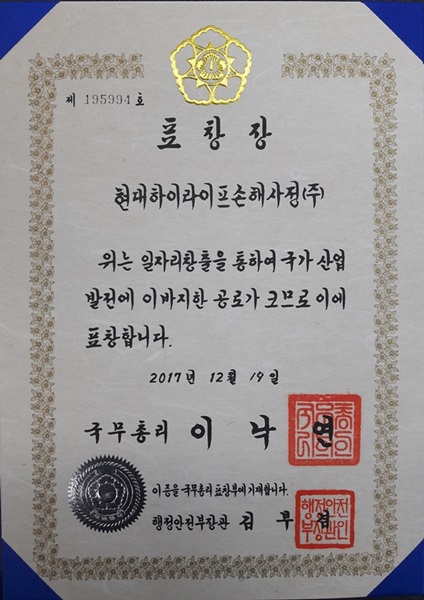 제 195994 호
표창장
현대하이라이프손해사정(주)
위는 일자리창출을 통하여 국가 산업
발전에 이바지한 공로가 크므로 이에
표창합니다.
2017년 12월 19일
국무총리 이낙연
이 증을 국무총리 표창부에 기재합니다.
행정안전부장관 김부겸
행정안전
부장관인